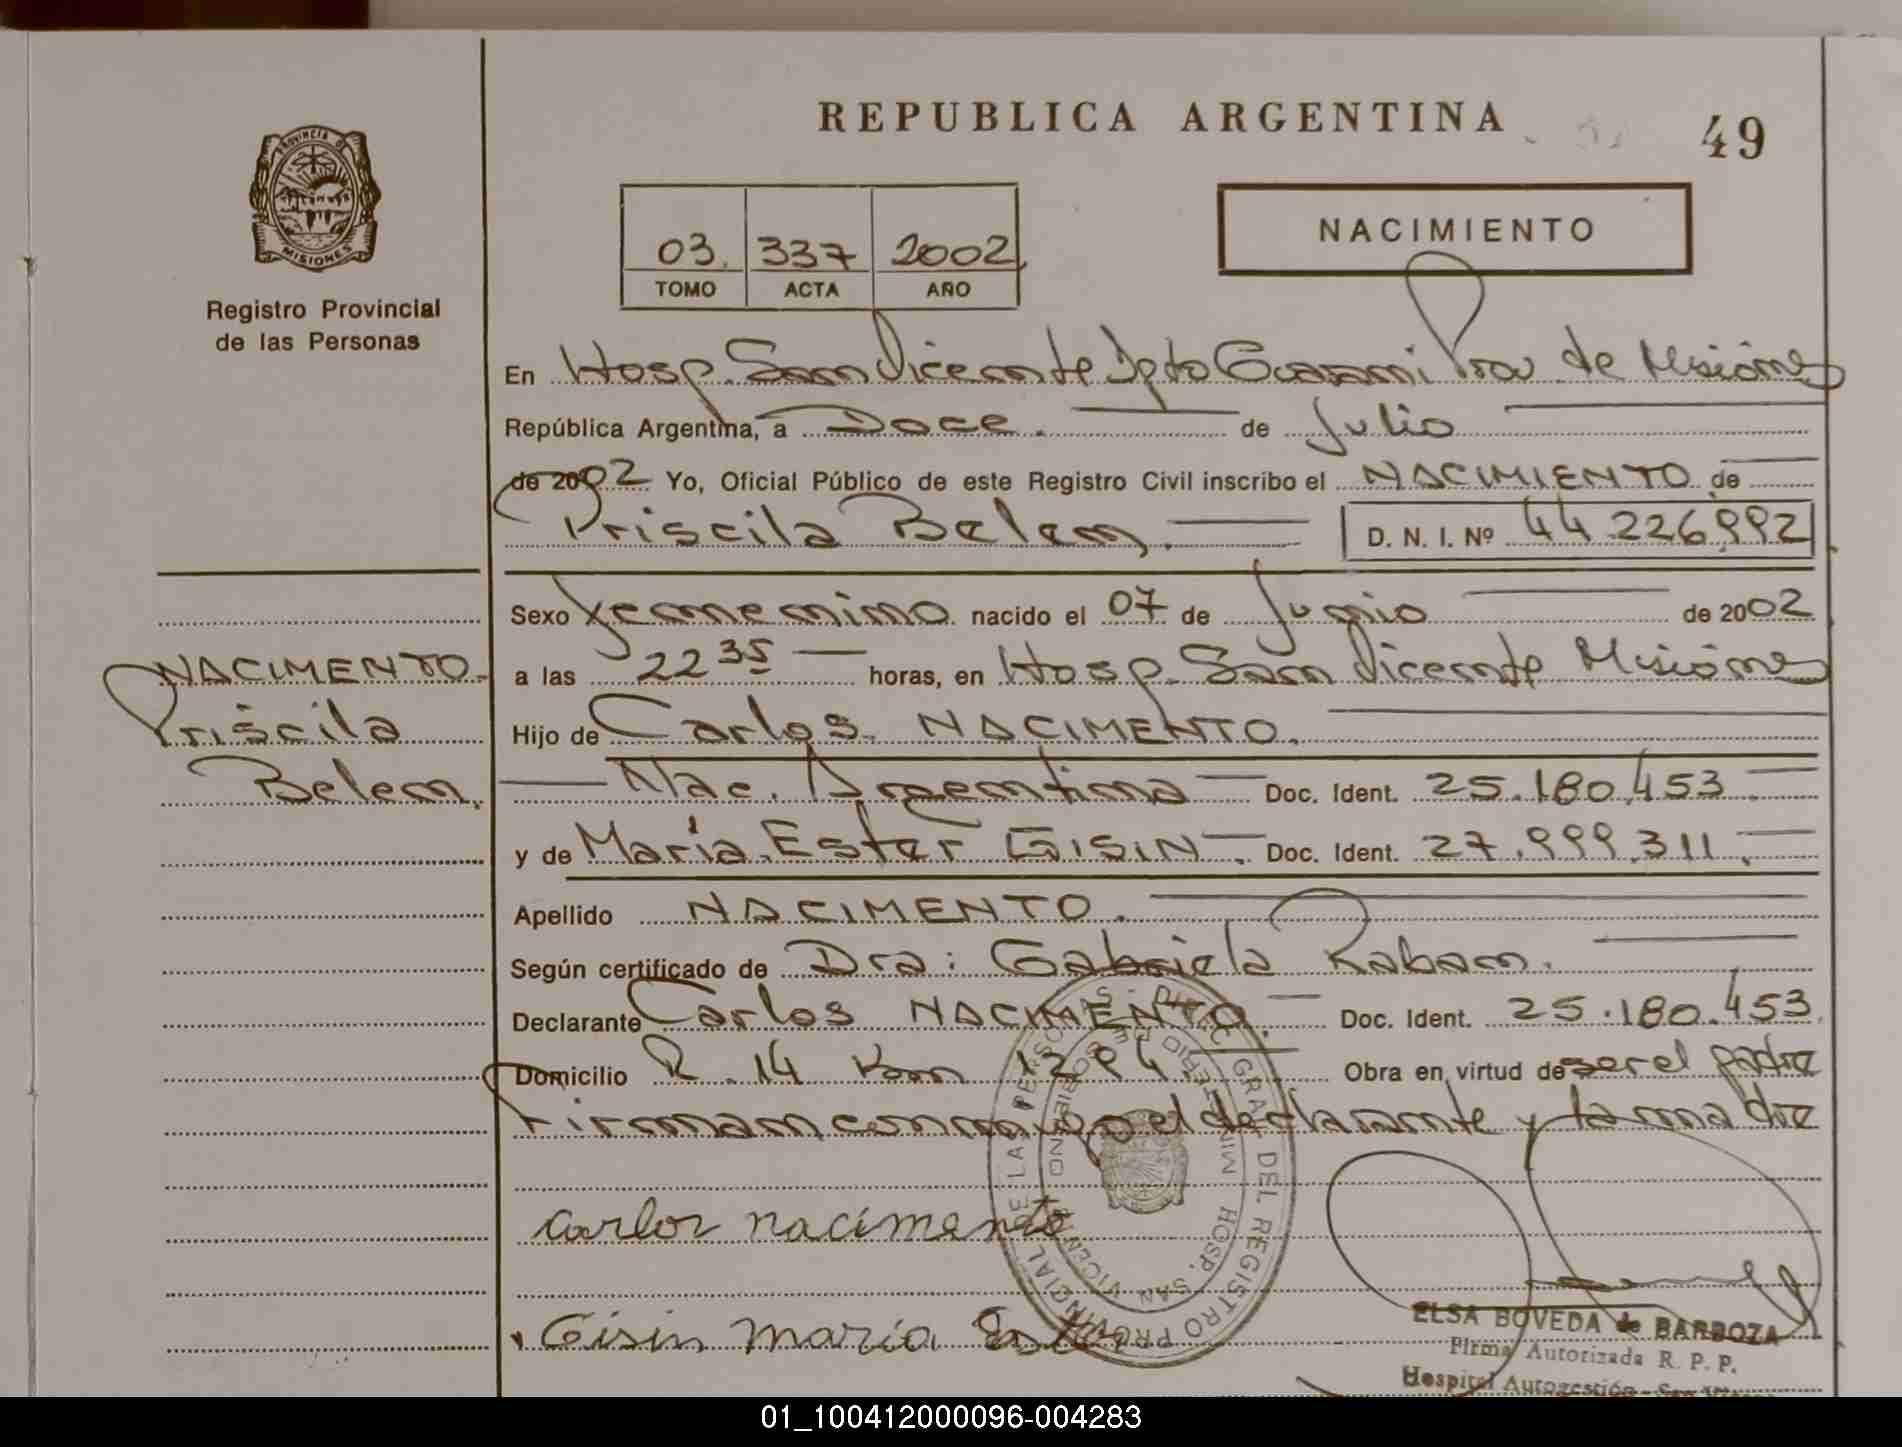 REPUBLICA ARGENTINA
49
PROVINCIA DE
MISIONES
Registro Provincial
de las Personas
03. 337 2002
TOMO ACTA AÑO
NACIMIENTO
En Hosp. San Vicente Dpto Guarani Prov de Misiónes
República Argentina, a Doce. de Julio
de 2002 Yo, Oficial Público de este Registro Civil inscribo el NACIMIENTO de
Priscila Belem. D. N. I. Nº 44.226.992
Sexo femenino nacido el 07 de Junio de 2002
a las 22 35 horas, en Hosp. San Vicente Misiónes
Hijo de Carlos NACIMENTO.
Nac. Argentina Doc. Ident. 25.180.453
y de María Ester GISIN. Doc. Ident. 27.999.311.
Apellido NACIMENTO.
Según certificado de Dra: Gabriela Raban.
Declarante Carlos NACIMENTO. Doc. Ident. 25.180.453.
Domicilio R. 14 Km 1294. Obra en virtud de ser el padre
Firman conmigo el declarante y la madre
NACIMENTO
Priscila
Belem.
carlos nacimento
Gisin maria Ester
DIREC. GRAL. DEL REGISTRO PROVINCIAL DE LAS PERSONAS
MINISTERIO DE GOBIERNO
HOSP. SAN VICENTE
ELSA BOVEDA de BARBOZA
Firma Autorizada R. P. P.
Hospital Autogestión - San
01_100412000096-004283